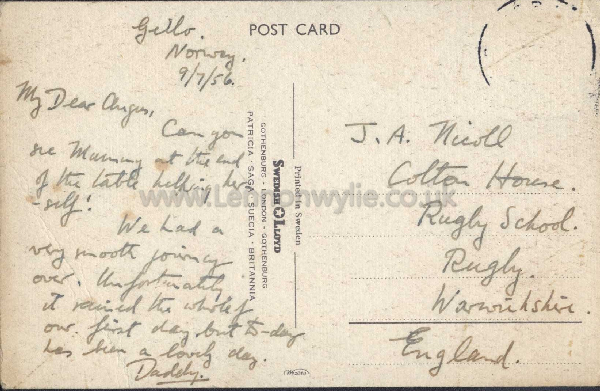 POST CARD
Gello.
Norway.
9/7/56.
My Dear Angus,
Can you
see Mummy at the end
of the table helping her
-self!
We had a
very smooth journey
over. Unfortunately
it rained the whole of
our first day but to-day
has been a lovely day.
Daddy.
Printed in Sweden
SWEDISH LLOYD
GOTHENBURG - LONDON - GOTHENBURG
PATRICIA · SAGA · SUECIA · BRITANNIA
J. A. Nicoll
Cotton House.
Rugby School.
Rugby.
Warwickshire.
England.
www.Lennonwylie.co.uk